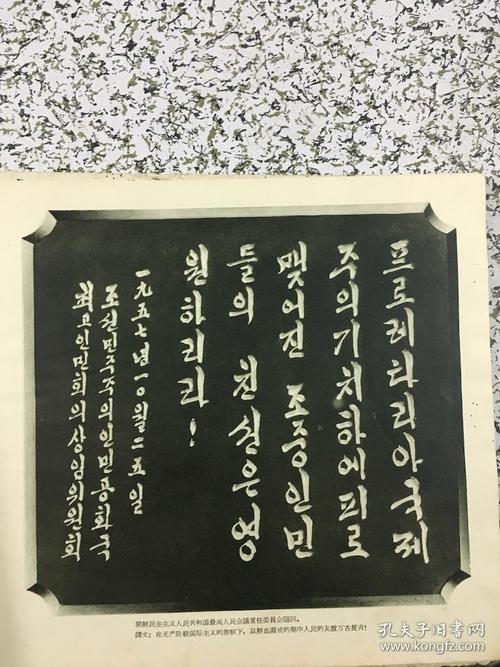 프로레타리아국제
주의기치하에피로
맺어진 조중인민
들의 친선은영
원하리라!
一九五七년一〇월二五일
조선민주주의인민공화국
최고인민회의상임위원회
朝鮮民主主义人民共和国最高人民会議常任委員会題詞。
譯文：在无产阶級国际主义的旗幟下，以鮮血凝成的朝中人民的友誼万古長青！
孔夫子旧书网
kongfz.com